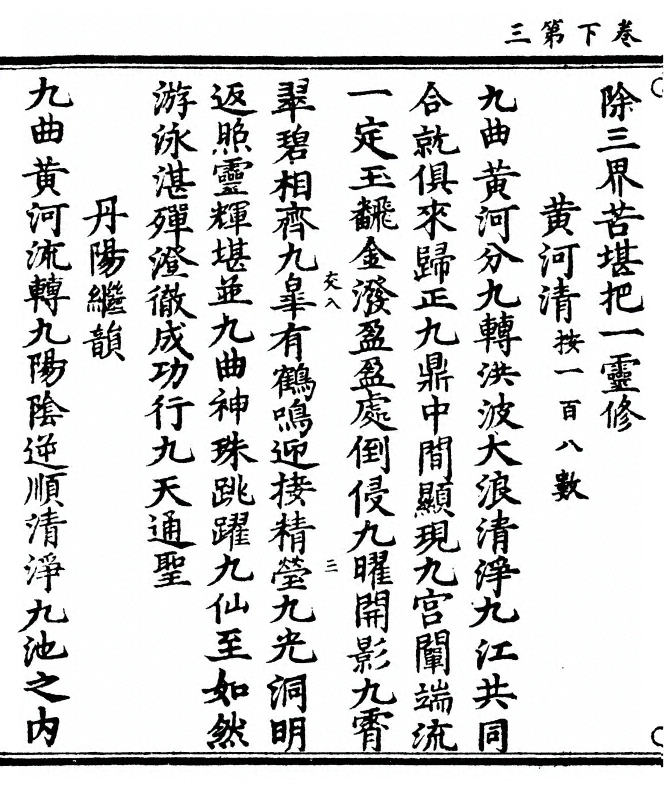 卷下第三
除三界苦堪把一靈修
黄河清按一百八數
九曲黄河分九轉洪波大浪清淨九江共同
合就俱來歸正九鼎中間顯現九宮闡端流
一定玉飜金潑盈盈處倒侵九曜開影九霄
翠碧相齊九臯有鶴鳴迎接精瑩九光洞明
交入
三
返照靈輝堪並九曲神珠跳躍九仙至如然
游泳湛殫澄徹成功行九天通聖
丹陽繼韻
九曲黄河流轉九陽陰逆順清淨九池之内